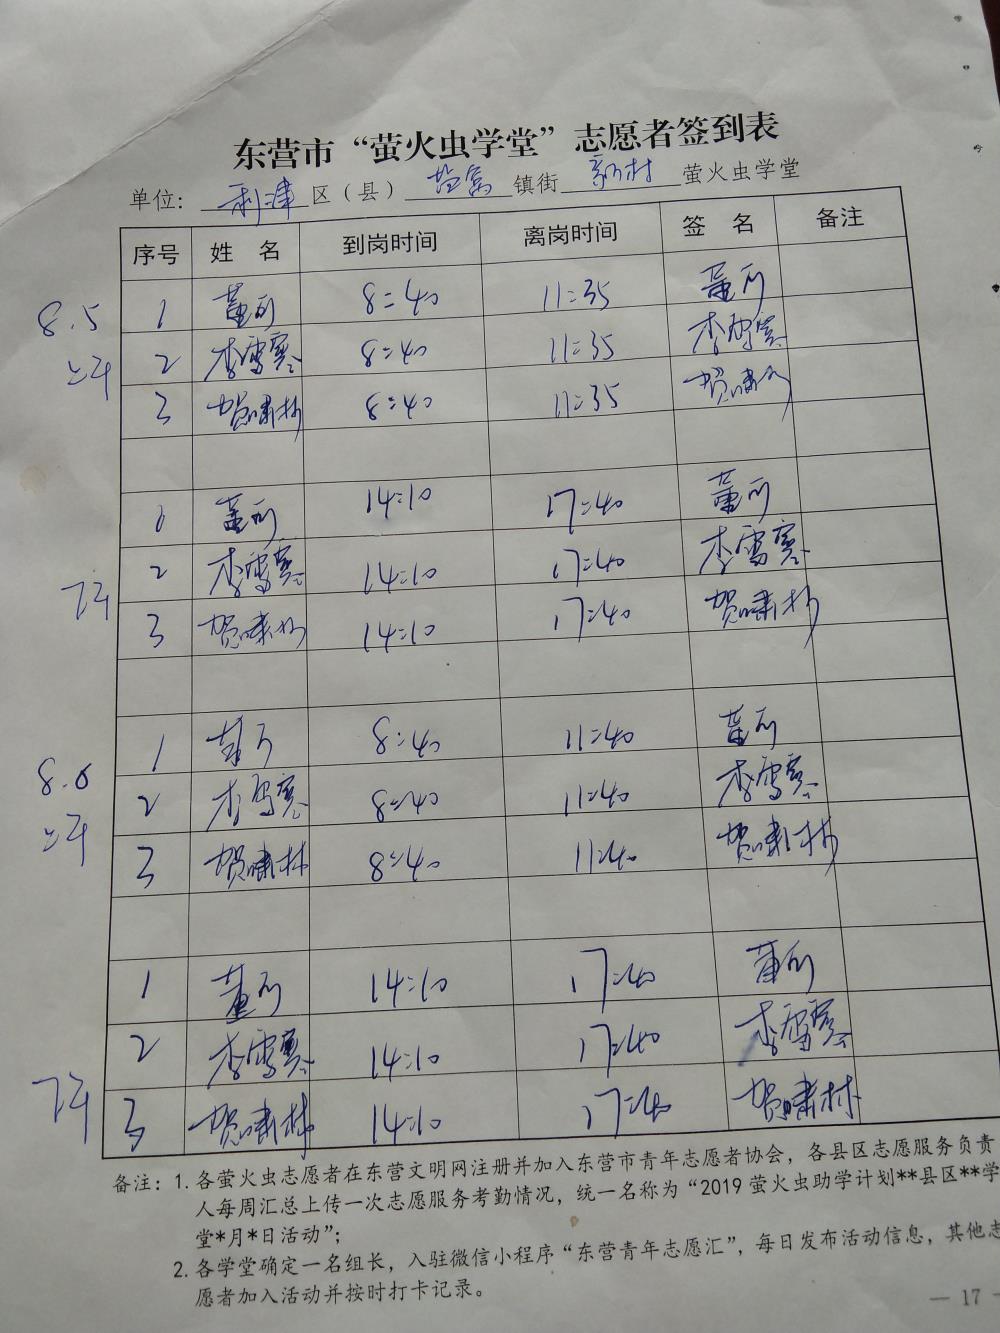 东营市“萤火虫学堂”志愿者签到表
单位：利津区（县）盐窝镇街新村萤火虫学堂
序号 姓 名 到岗时间 离岗时间 签 名 备注
8.5
上午
1 8:40 11:35
2 李雪寒 8:40 11:35 李雪寒
3 贺啸林 8:40 11:35 贺啸林
下午
1 14:10 17:40
2 李雪寒 14:10 17:40 李雪寒
3 贺啸林 14:10 17:40 贺啸林
8.6
上午
1 8:40 11:40
2 李雪寒 8:40 11:40 李雪寒
3 贺啸林 8:40 11:40 贺啸林
下午
1 14:10 17:40
2 李雪寒 14:10 17:40 李雪寒
3 贺啸林 14:10 17:40 贺啸林
备注：1. 各萤火虫志愿者在东营文明网注册并加入东营市青年志愿者协会，各县区志愿服务负责
人每周汇总上传一次志愿服务考勤情况，统一名称为“2019 萤火虫助学计划**县区**学
堂*月*日活动”；
2. 各学堂确定一名组长，入驻微信小程序“东营青年志愿汇”，每日发布活动信息，其他志
愿者加入活动并按时打卡记录。
— 17 —